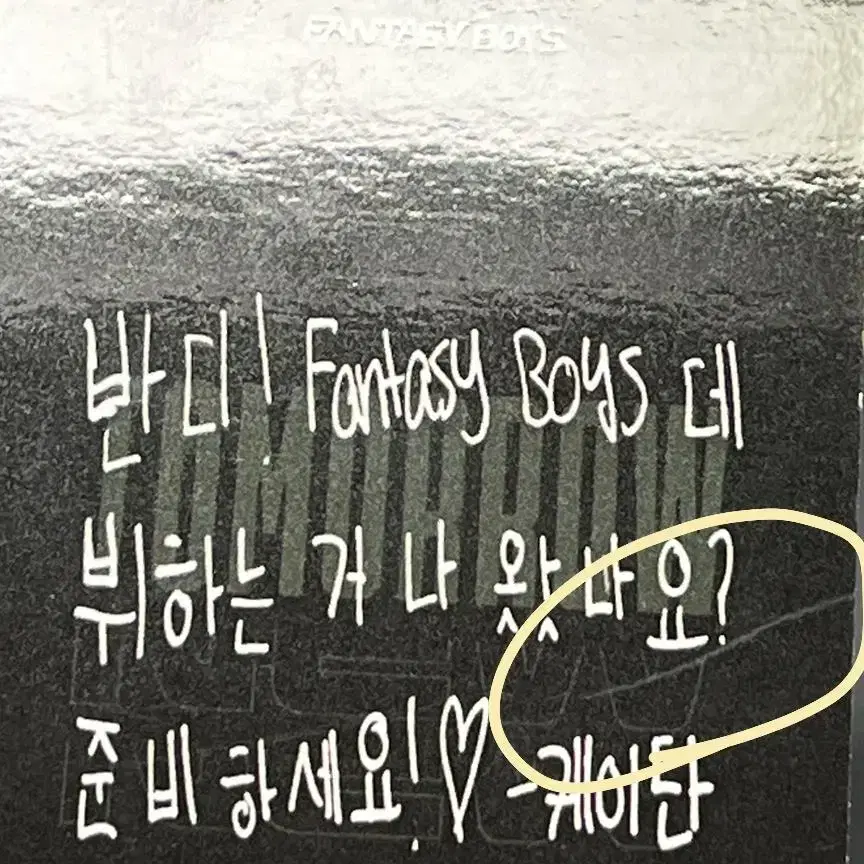 FANTASY BOYS
TOMORROW
반디! Fantasy Boys 데
뷔하는 거 나 왔나요?
준비하세요!♡ -케이단